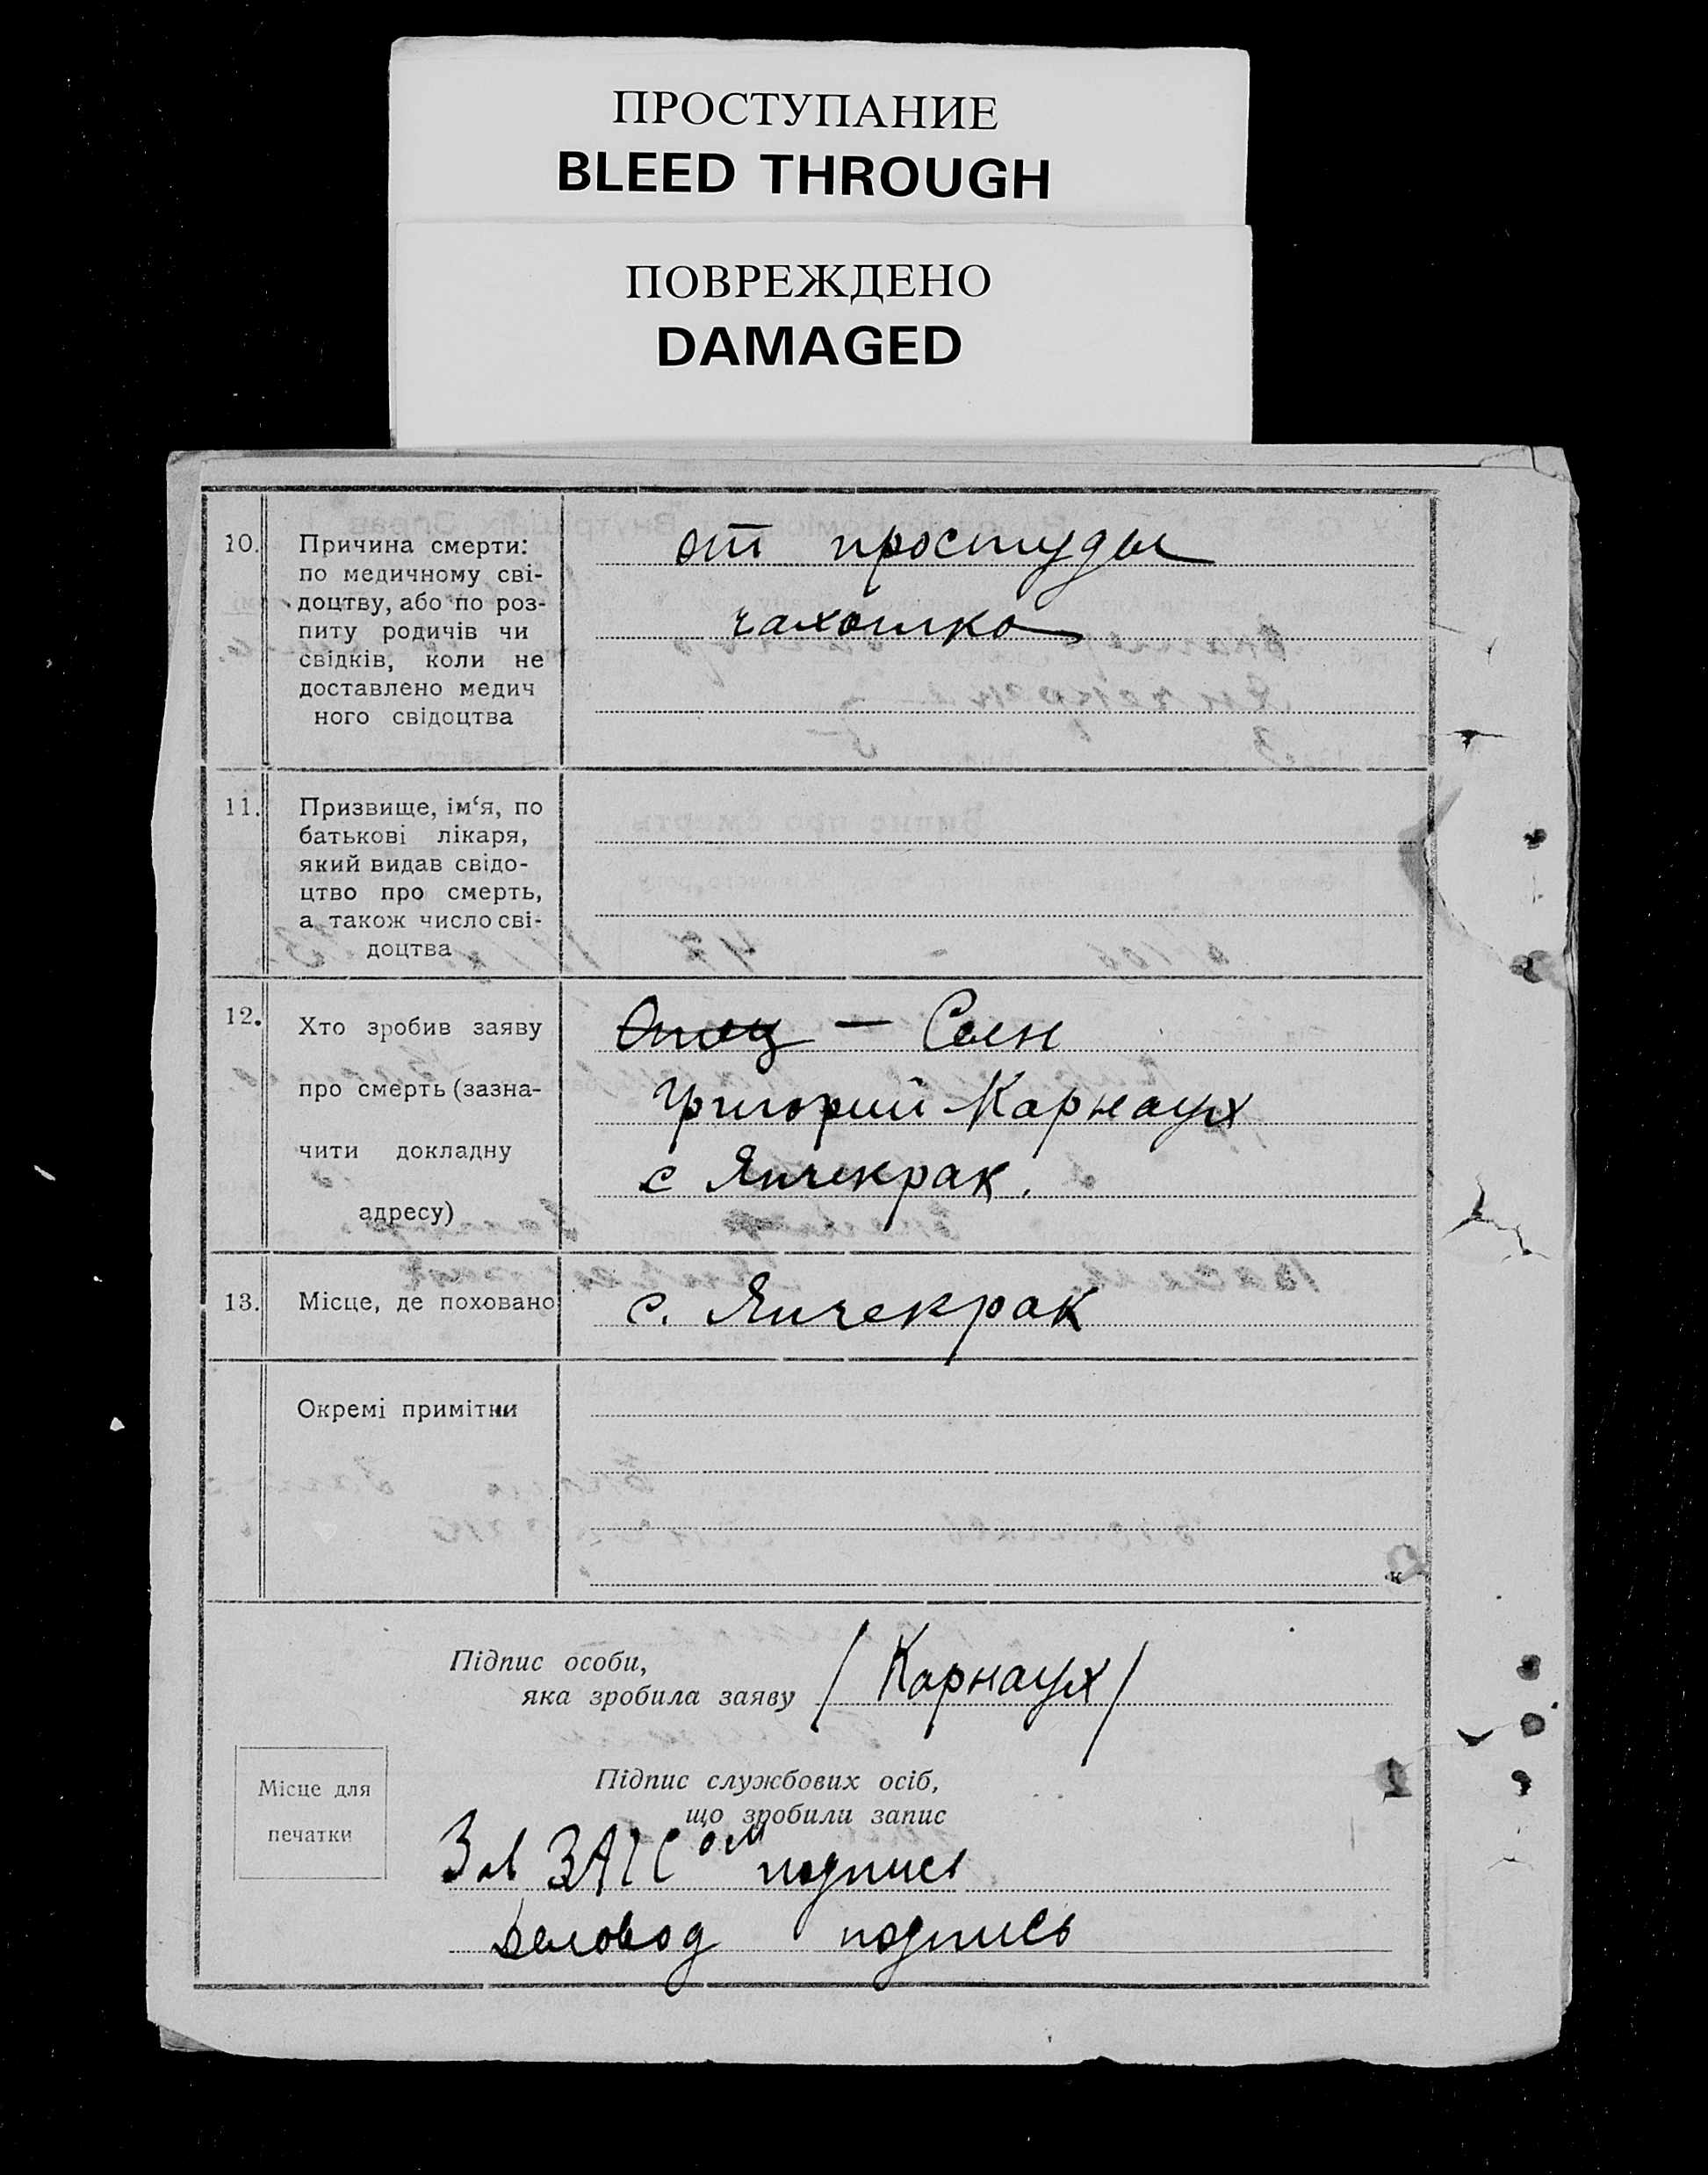 ПРОСТУПАНИЕ
BLEED THROUGH
ПОВРЕЖДЕНО
DAMAGED
10. Причина смерти:
по медичному сві-
доцтву, або по роз-
питу родичів чи
свідків, коли не
доставлено медич
ного свідоцтва
от простуды
чахотка
11. Призвище, ім‘я, по
батькові лікаря,
який видав свідо-
цтво про смерть,
а також число сві-
доцтва
12. Хто зробив заяву
про смерть (зазна-
чити докладну
адресу)
Отец — Сын
Григорий Карнаух
с Янчекрак.
13. Місце, де поховано
с. Янчекрак
Окремі примітки
Підпис особи,
яка зробила заяву / Карнаух /
Місце для
печатки
Підпис службових осіб,
що зробили запис
Зав ЗАГСом подпись
Деловод подпись